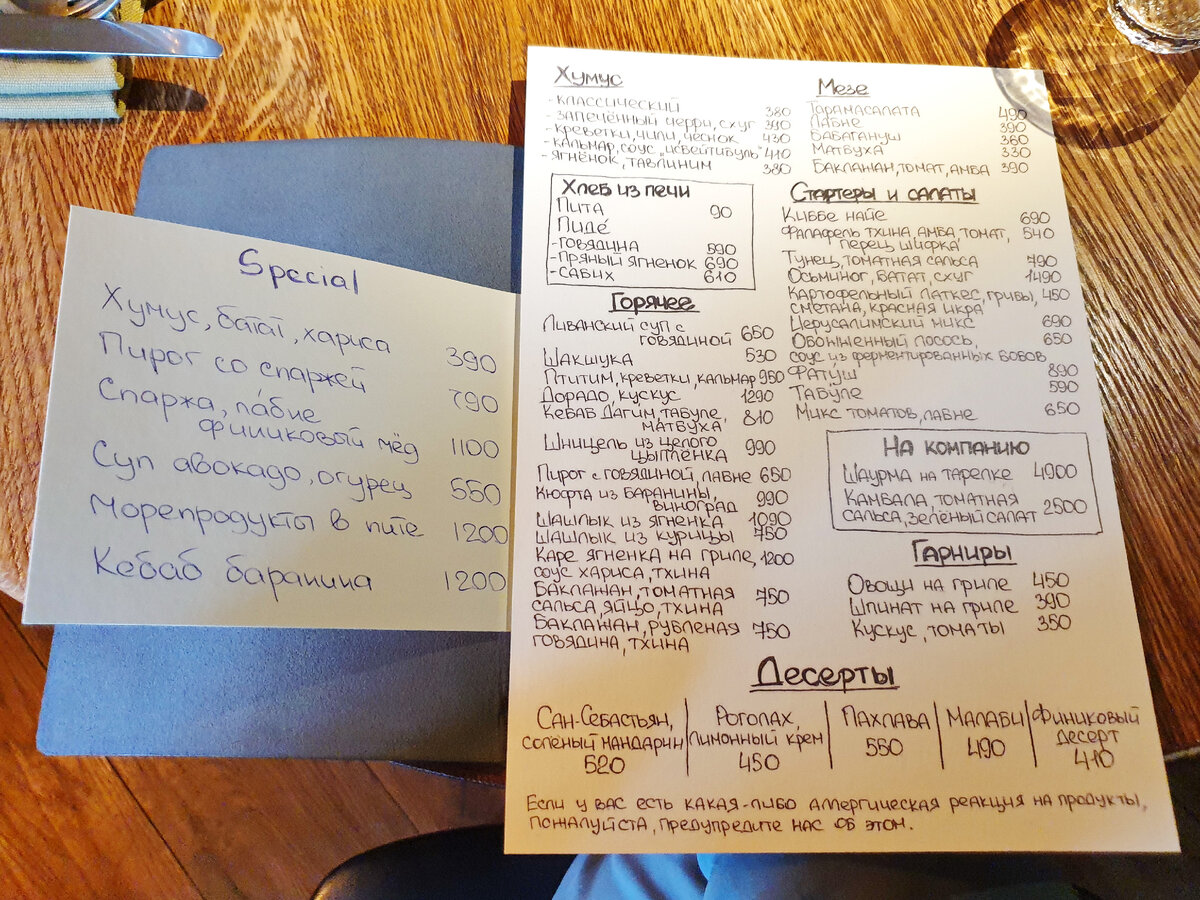 Special
Хумус, батат, хариса 390
Пирог со спаржей 790
Спаржа, лабне
финиковый мёд 1100
Суп авокадо, огурец 550
Морепродукты в пите 1200
Кебаб баранина 1200
Хумус
- классический 380
- запечённый черри, схуг 390
- креветки, чили, чеснок 430
- кальмар, соус "исвейтибуль" 410
- ягнёнок, тавлиним 380
Хлеб из печи
Пита 90
Пиде
- говядина 590
- пряный ягненок 690
- сабих 610
Горячее
Ливанский суп с
говядиной 650
Шакшука 530
Птитим, креветки, кальмар 950
Дорадо, кускус 1290
Кебаб Дагим, табуле,
матбуха 810
Шницель из целого
цыпленка 990
Пирог с говядиной, лабне 650
Кюфта из баранины,
виноград 990
Шашлык из ягненка 1090
Шашлык из курицы 750
Каре ягненка на гриле, 1200
соус хариса, тхина
Баклажан, томатная
сальса, яйцо, тхина 750
Баклажан, рубленая 750
говядина, тхина
Мезе
Тарамасалата 490
Лабне 390
Бабагануш 360
Матбуха 330
Баклажан, томат, амба 390
Стартеры и салаты
Киббе найе 690
Фалафель тхина, амба, томат, 540
перец шифка
Тунец, томатная сальса 790
Осьминог, батат, схуг 1490
Картофельный латкес, грибы, 450
сметана, красная икра
Иерусалимский микс 690
Обожженный лосось, 650
соус из ферментированных бобов
Фатуш 890
Табуле 590
Микс томатов, лабне 650
На компанию
Шаурма на тарелке 4900
Камбала, томатная
сальса, зелёный салат 2500
Гарниры
Овощи на гриле 450
Шпинат на гриле 390
Кускус, томаты 350
Десерты
Сан-Себастьян,
соленый мандарин
520
Роголах,
лимонный крем
450
Пахлава
550
Малаби
490
Финиковый
десерт
410
Если у вас есть какая-либо аллергическая реакция на продукты,
пожалуйста, предупредите нас об этом.